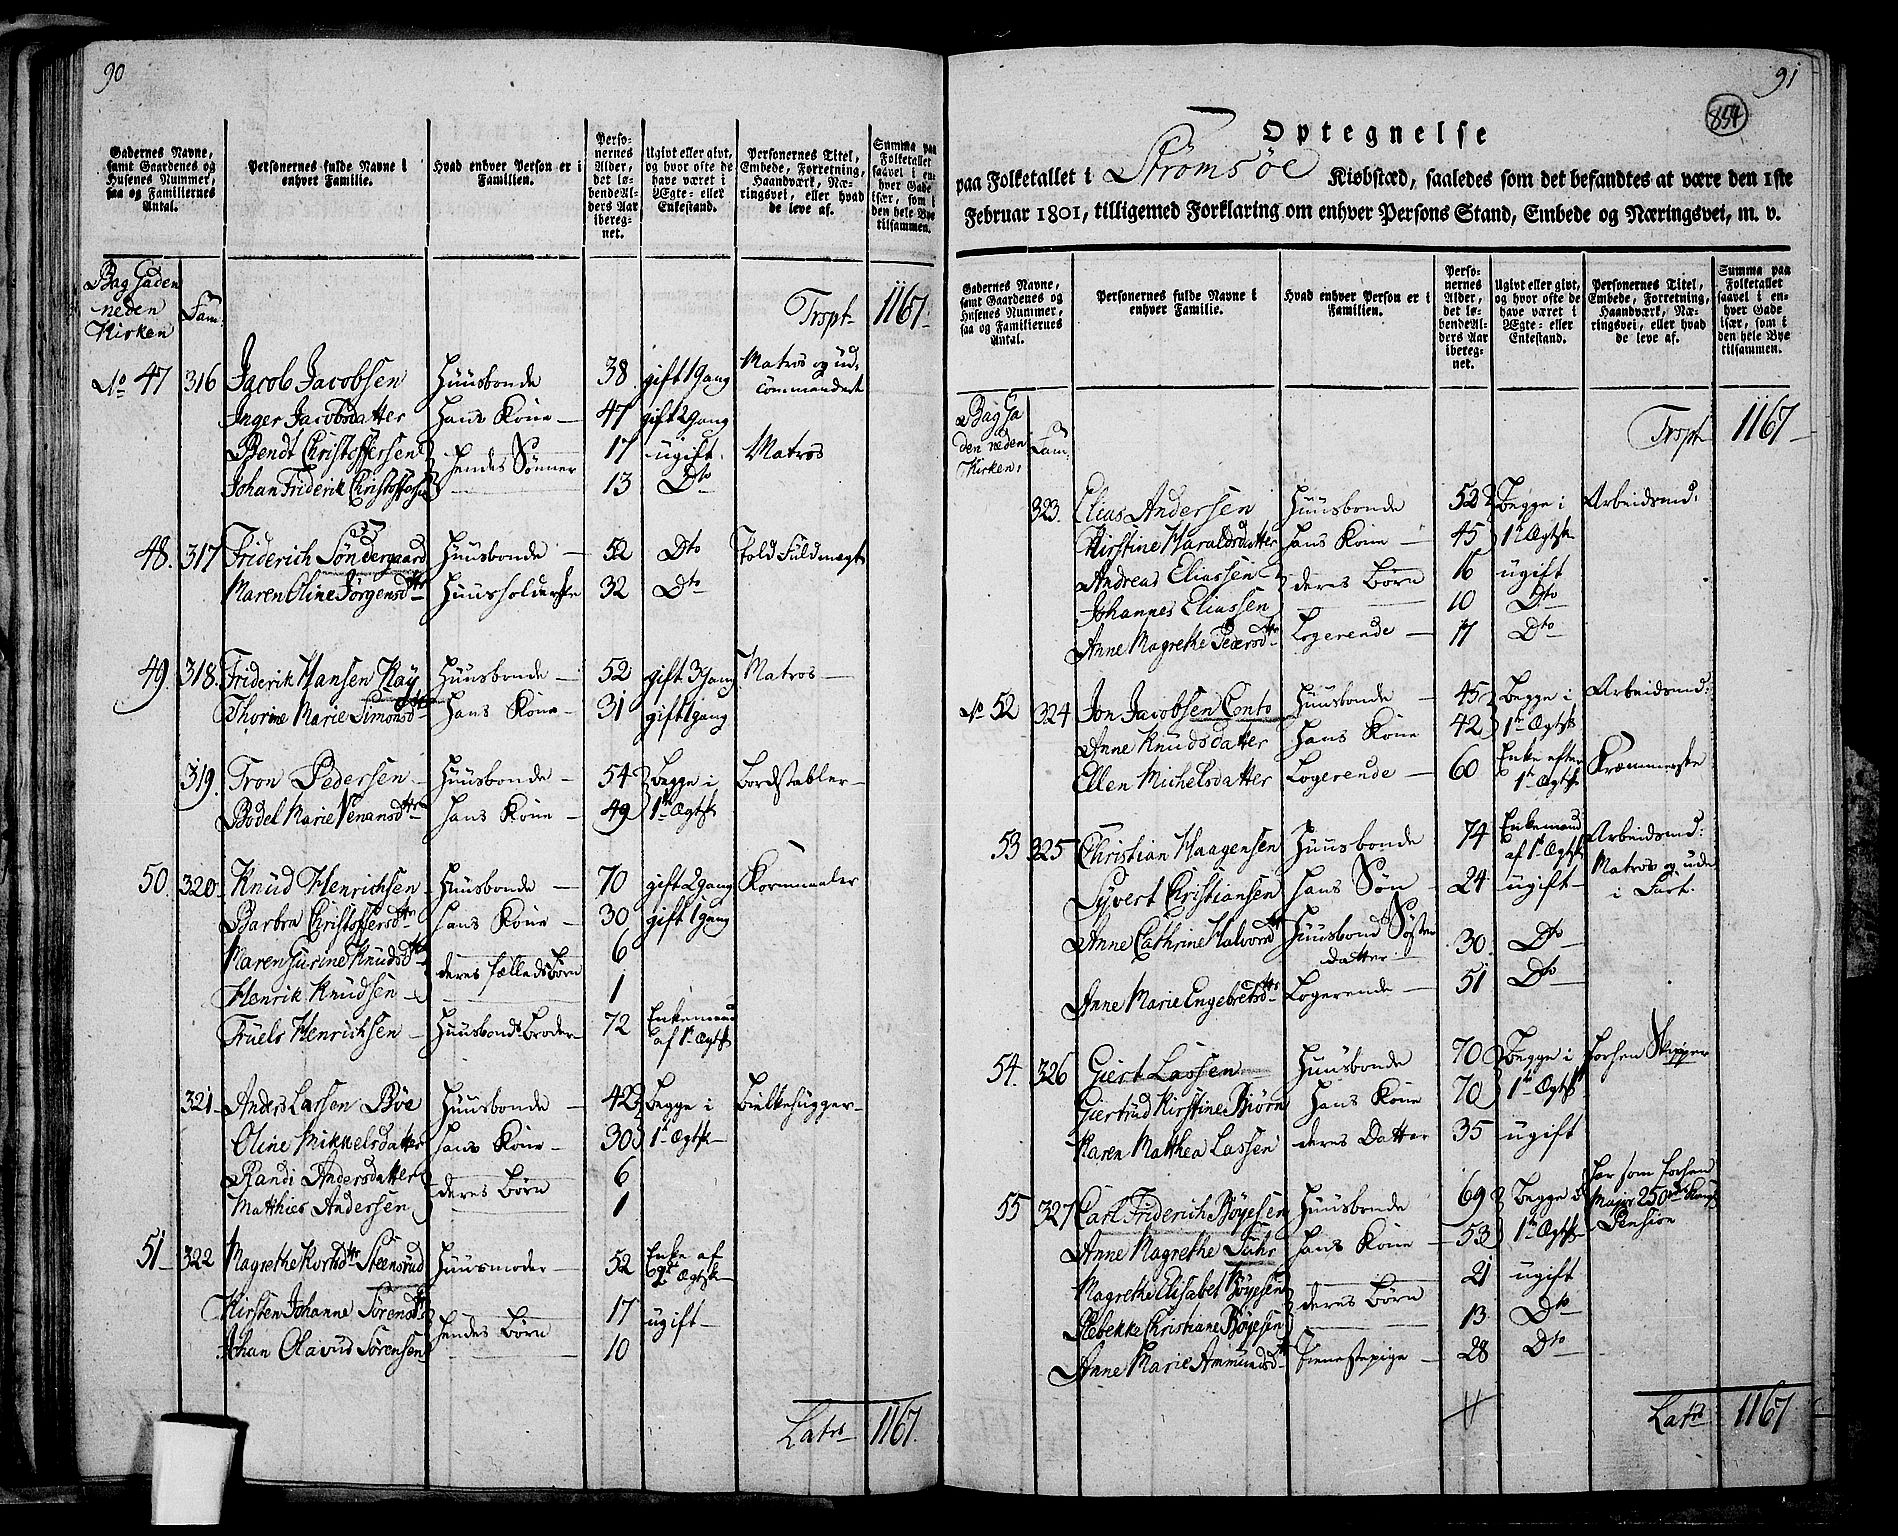 90
Gadernes Navne, samt Gaardenes og Husenes Nummer, saa og Familiernes Antal.
Personernes fulde Navne i enhver Familie.
Hvad enhver Person er i Familien.
Personernes Alder, det løbende Alders Aar iberegnet.
Ugivt eller givt, og hvor ofte de have været i Ægte- eller Enkestand.
Personernes Titel, Embede, Forretning, Haandværk, Næringsvei, eller hvad de leve af.
Summa paa Folketallet saavel i enhver Gade især, som i den hele Bye tilsammen.
Bag Gaden neden Kirken Fam: Trspt 1167.
No 47 316 Jacob Jacobsen Huusbonde 38 gift 1 Gang Matros og udcommandert
Inger Jacobsdatter Hans Kone 47 gift 2 gang
Bendt Christoffersen hendes Sønner 17 ugift Matros
Johan Friderik Christoffersen 13 Do
48. 317 Friderich Søndergaard Huusbonde 52 Do Told Fuldmægt
Maren Oline Jørgensdtr Huusholderske 32 Do
49. 318. Friderik Hansen Kay Huusbonde 52 gift 3 Gang Matros
Thorine Marie Simonsdtr Hans Kone 31 gift 1 gang
319. Tron Pedersen Huusbonde 54 Begge i Bordstabler
Bodel Marie Venansdtr Hans Kone 49 1te Ægtsk
50. 320 Knud Henrichsen Huusbonde 70 gift 2 gang Kornmaaler
Barbra Christoffersdtr Hans Kone 30 gift 1 gang
Maren Surine Knudsdtr deres fælleds Børn 6
Henrik Knudsen 1
Truels Henrichsen Huusbonds Broder 72 Enkemand af 1te Ægtsk
321 Anders Larsen Bøe Huusbonde 42 Begge i Bielkehugger
Oline Mikkelsdatter Hans Kone 30 1te Ægtsk
Randi Andersdatter deres Børn 6
Matthies Andersen 1
51 322 Magrethe Kortsdtr Steensrud Huusmoder 52 Enke af 2det Ægtsk
Kirsten Johanne Sørensdtr hendes Børn 17 ugift
Johan Olavus Sørensen 10
Latus 1167.
91
854
Optegnelse
paa Folketallet i Strømsøe Kiøbstæd, saaledes som det befandtes at være den 1ste
Februar 1801, tilligemed Forklaring om enhver Persons Stand, Embede og Næringsvei, m. v.
Gadernes Navne, samt Gaardenes og Husenes Nummer, saa og Familiernes Antal.
Personernes fulde Navne i enhver Familie.
Hvad enhver Person er i Familien.
Personernes Alder, det løbende Alders Aar iberegnet.
Ugivt eller givt, og hvor ofte de have været i Ægte- eller Enkestand.
Personernes Titel, Embede, Forretning, Haandværk, Næringsvei, eller hvad de leve af.
Summa paa Folketallet saavel i enhver Gade især, som i den hele Bye tilsammen.
Bag Gaden neden Kirken. Fam: Trspt 1167
323. Elias Andersen Huusbonde 52 Begge i Arbeidsmd:
Kirstine Haraldsdatter Hans Kone 45 1te Ægtsk
Andreas Eliassen deres Børn 16 ugift
Johannes Eliassen 10 Do
Anne Magrethe Pedersdtr Logerende 17 Do
No 52 324 Jon Jacobsen Conto Huusbonde 45 Begge i Arbeidsmd:
Anne Knudsdatter Hans Kone 42 1te Ægtsk
Ellen Michelsdatter Logerende 60 Enke efter 1te Ægtsk Kræmmerske
53 325 Christian Haagensen Huusbonde 74 Enkemand af 1te Ægtsk Arbeidsmd:
Syvert Christiansen Hans Søn 24 ugift Matros og ude i Fart.
Anne Cathrine Halvorsdtr Huusbond Søsterdatter 30 Do
Anne Marie Engebretsdtr Logerende 51 Do
54. 326 Giert Lassen Huusbonde 70 Begge i forhen Skipper
Giertrud Kirstine Biørn Hans Kone 70 1te Ægtsk
Karen Matthea Lassen deres Datter 35 ugift
55 327 Carl Friderich Bøyesen Huusbonde 69 Begge i har som forhen Major 250 rd Pension
Anne Magrethe Suhr Hans Kone 53 1te Ægtsk
Magrethe Elisabet Bøyesen deres Børn 21 ugift
Rebekke Christiane Bøyesen 13 Do
Anne Marie Ammundsdtr Tienestepige 28 Do
Latus 1167